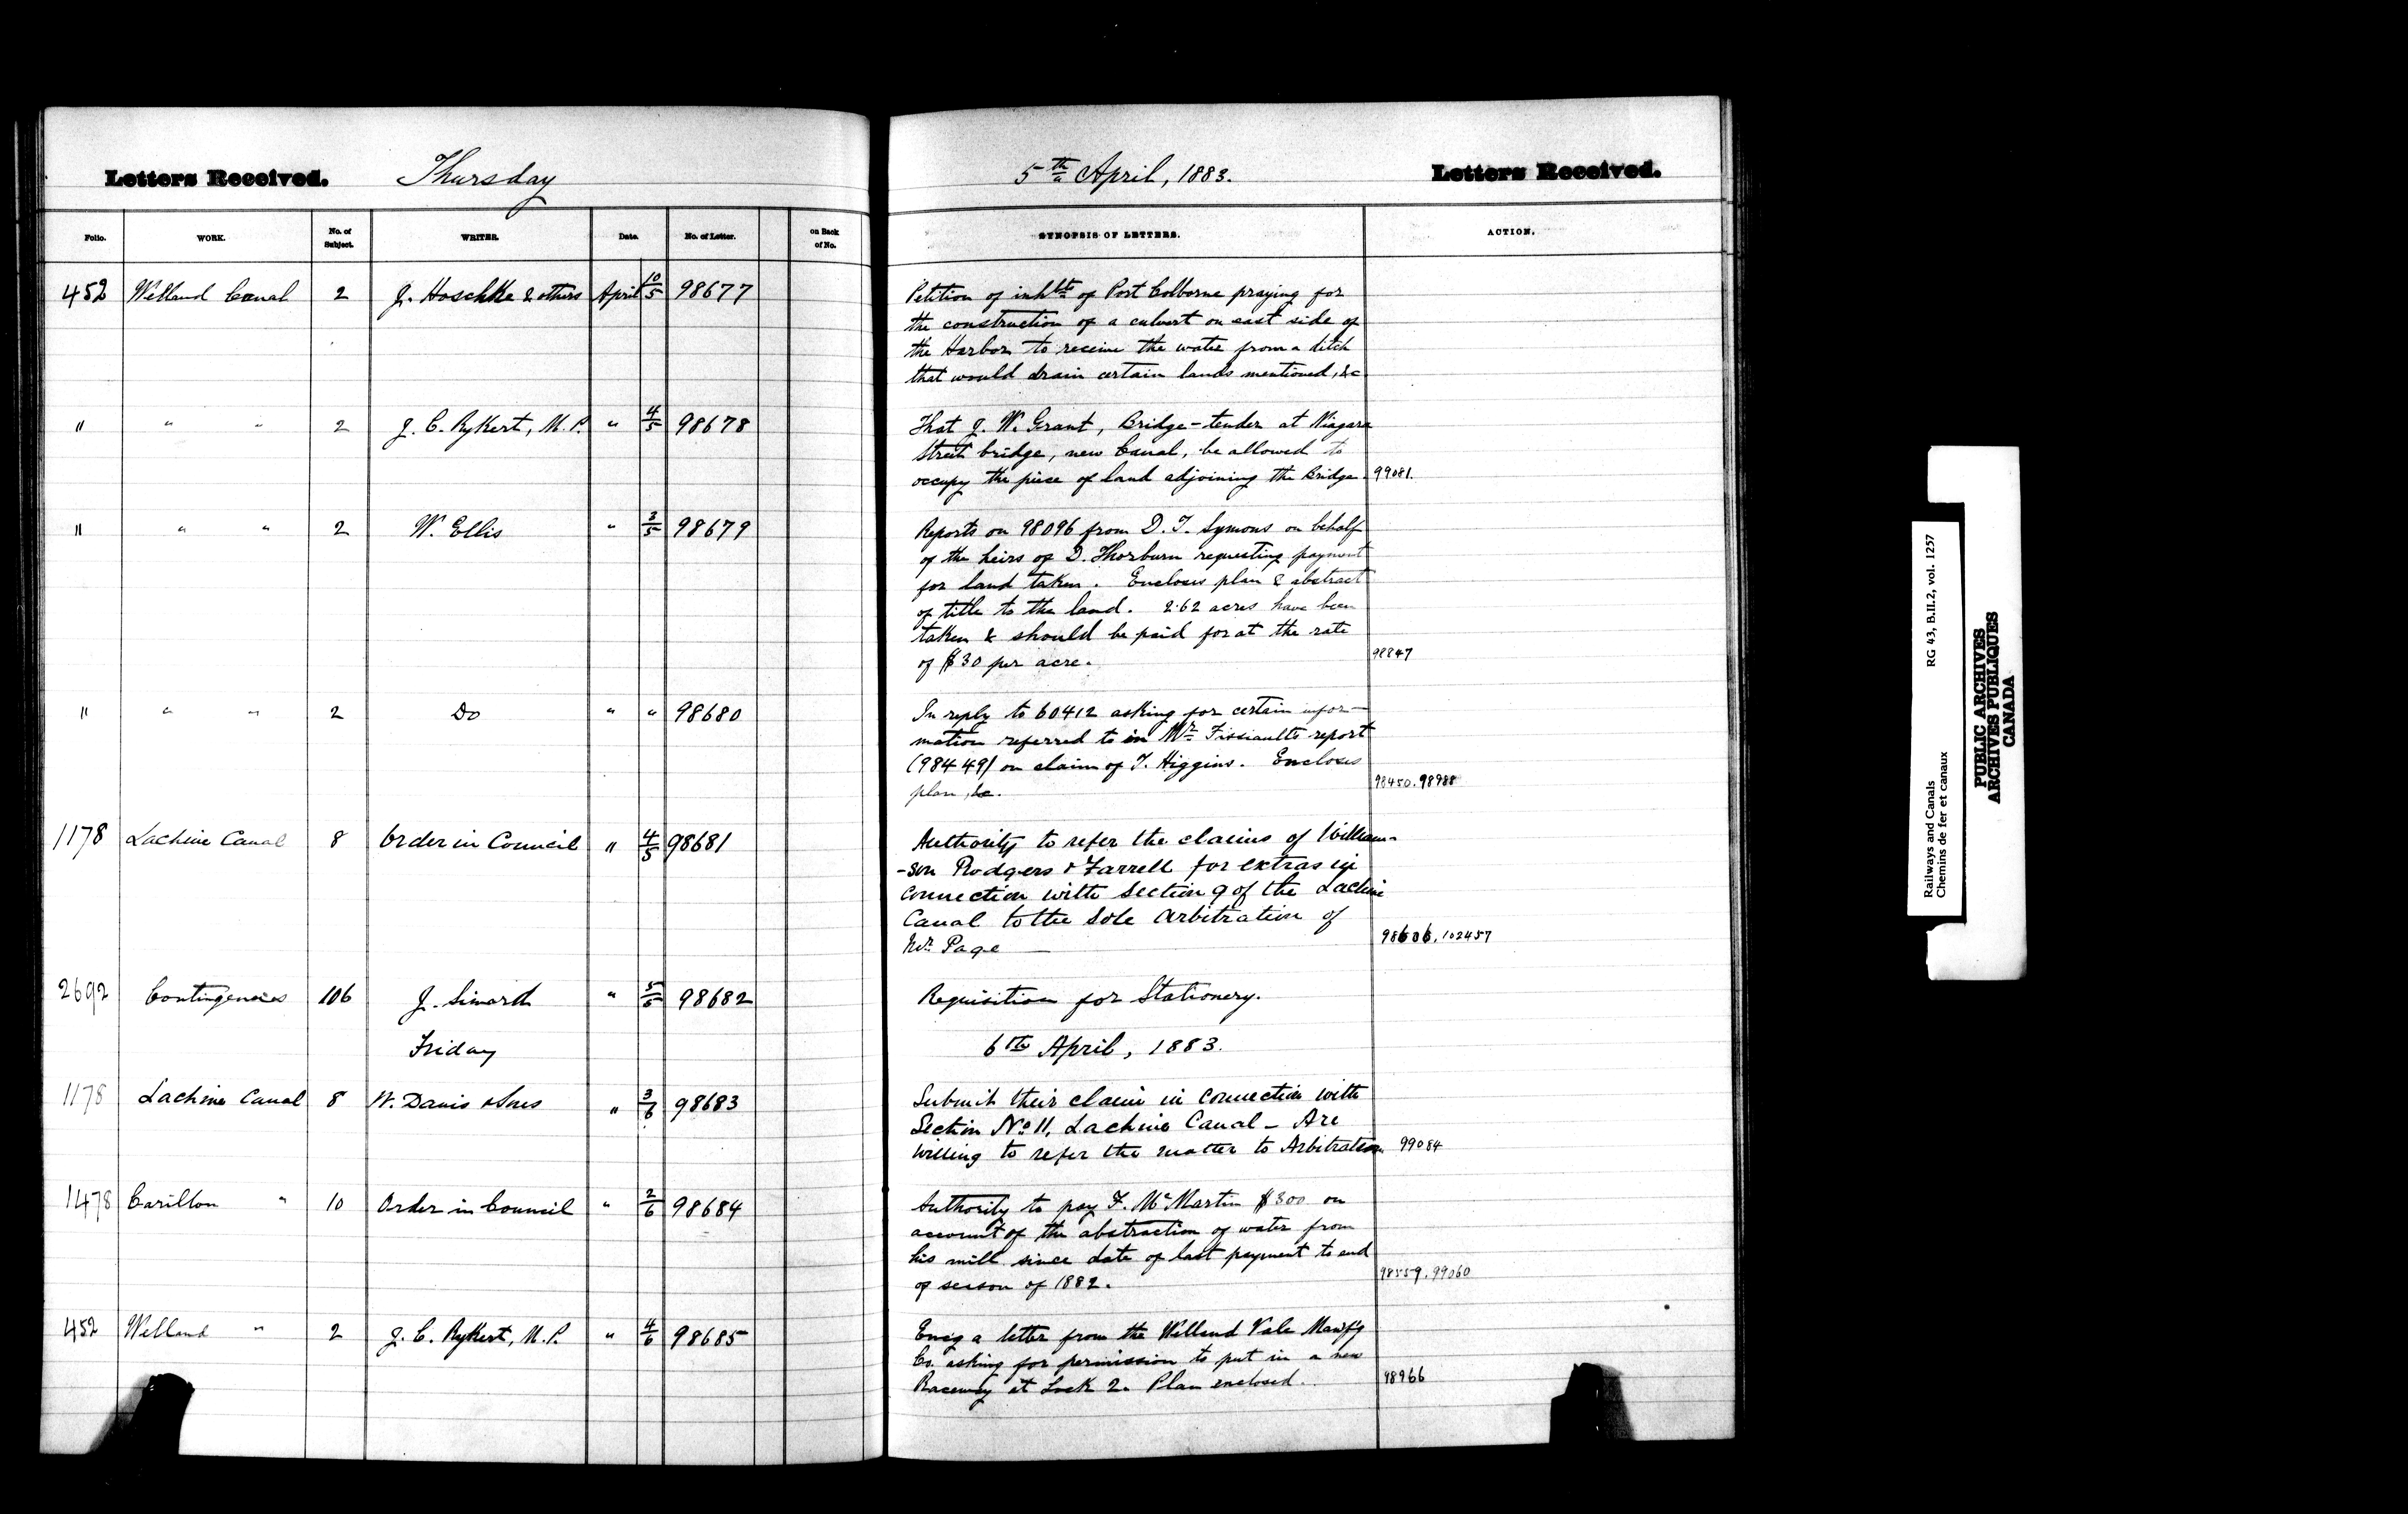 Letters Received. Thursday
5th April, 1883. Letters Received.
Folio. WORK. No. of Subject. WRITER. Date. No. of Letter. on Back of No. SYNOPSIS OF LETTERS. ACTION.
452 Welland Canal 2 J. Hoschke & others April 10/5 98677
Petition of inhbts of Port Colborne praying for
the construction of a culvert on east side of
the Harbor to receive the water from a ditch
that would drain certain lands mentioned, &c
" " " 2 J. C. Rykert, M.P. " 4/5 98678
That J. W. Grant, Bridge-tender at Niagara
Street bridge, new Canal, be allowed to
occupy the piece of land adjoining the Bridge. 99081.
" " " 2 W. Ellis " 3/5 98679
Reports on 98096 from D. T. Symons on behalf
of the heirs of D. Thorburn requesting payment
for land taken. Encloses plan & abstract
of title to the land. 2.62 acres have been
taken & should be paid for at the rate
of $30 per acre. 98847
" " " 2 Do " " 98680
In reply to 60412 asking for certain infor-
mation referred to in Mr. Fissiault's report
(98449) on claim of T. Higgins. Encloses
plan, &c. 98450. 98988
1178 Lachine Canal 8 Order in Council " 4/5 98681
Authority to refer the claims of William-
-son Rodgers & Farrell for extras in
connection with Section 9 of the Lachine
Canal to the Sole Arbitration of
Mr. Page — 98606, 102457
2692 Contingencies 106 J. Simard " 5/5 98682
Requisition for Stationery.
Friday 6th April, 1883.
1178 Lachine Canal 8 W. Davis & Sons " 3/6 98683
Submit their claim in connection with
Section No 11, Lachine Canal - Are
willing to refer the matter to Arbitration 99084
1478 Carillon " 10 Order in Council " 2/6 98684
Authority to pay F. McMartin $300 on
account of the abstraction of water from
his mill since date of last payment to end
of season of 1882. 98559, 99060
452 Welland " 2 J. C. Rykert, M.P. " 4/6 98685
Encg a letter from the Welland Vale Manf'g
Co. asking for permission to put in a new
Raceway at Lock 2. Plan enclosed. 98966
Railways and Canals RG 43, B.II.2, vol. 1257
Chemins de fer et canaux
PUBLIC ARCHIVES
ARCHIVES PUBLIQUES
CANADA